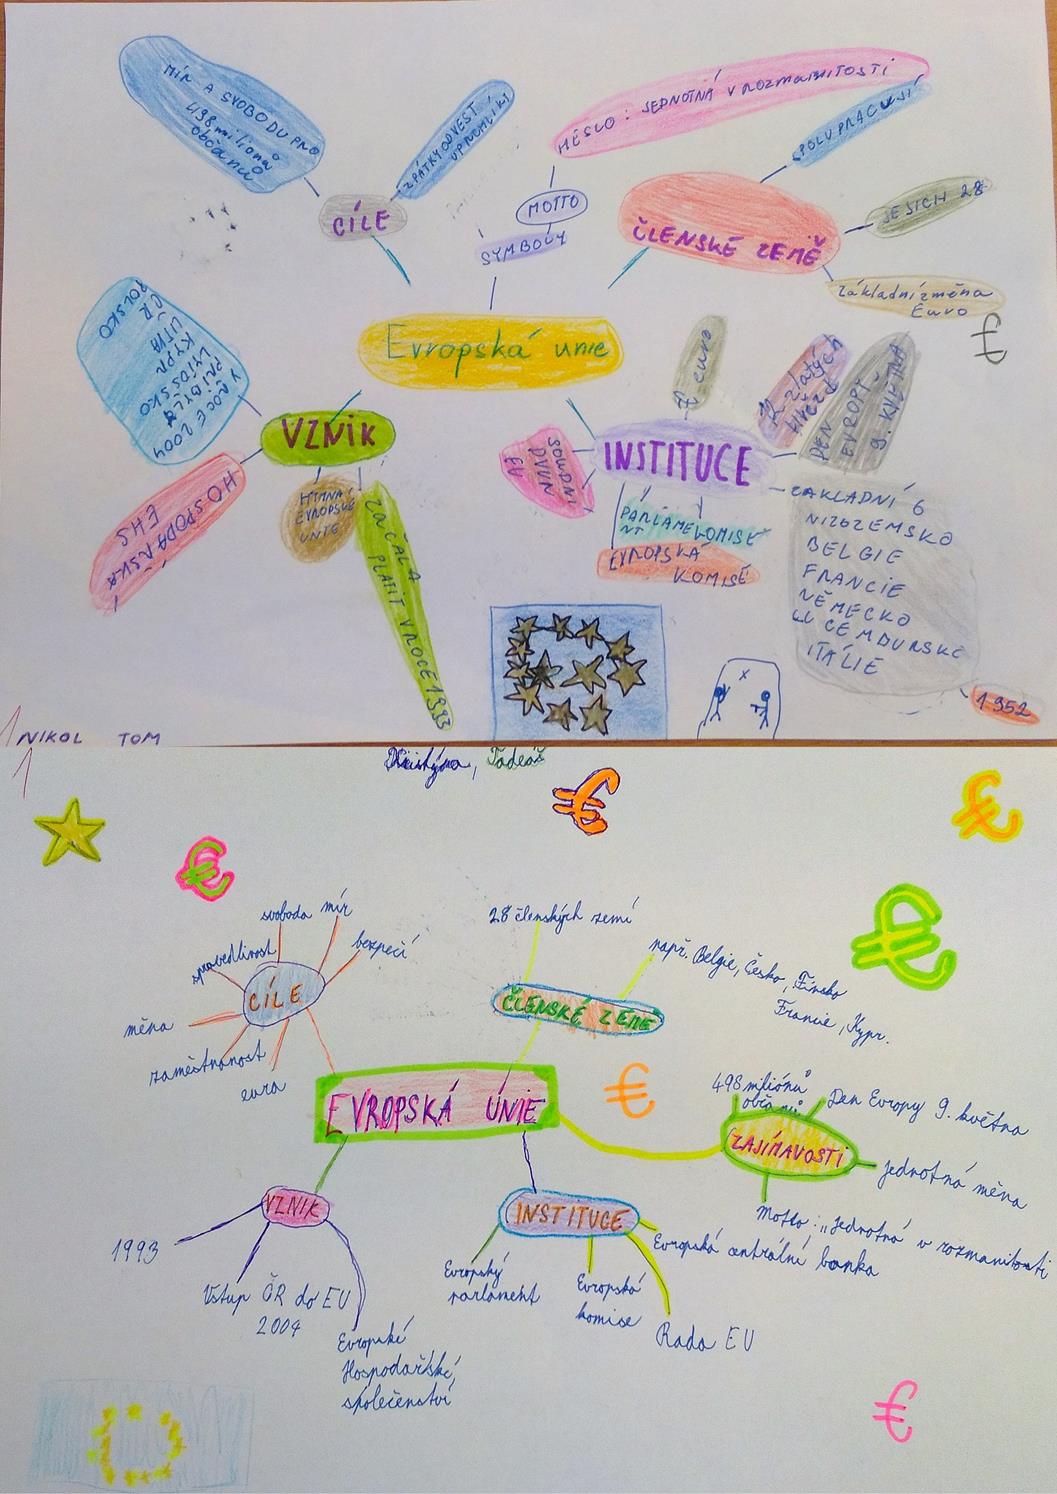 MÍR A SVOBODU PRO
498 milionů
občanů
ZPÁTKY ODVÉST
UPRCHLÍKY
CÍLE
HESLO : JEDNOTNÁ V ROZMANITOSTI
MOTTO
SYMBOLY
POLUPRACUJÍ
ČLENSKÉ ZEMĚ
JE JICH 28
Základní změna
Euro
Evropská unie
V ROCE 2004
PŘIBYLA
LOTOŠSKO
KYPR
LITVA
ČR
POLSKO
VZNIK
HOSPODAŘSKÁ
EHS
HYMNA
EVROPSKÉ
UNIE
ZAČALA
PLATIT V ROCE 1993
€ euro
12 zlatých
hvězd
DEN
EVROPY
9. KVĚTNA
INSTITUCE
SOUDNÍ
DVŮR
EU
PARLAMENT
EVROPSKÁ
KOMISE
ZAKLADNÍ 6
NIZOZEMSKO
BELGIE
FRANCIE
NĚMECKO
ITÁLIE
1952
NIKOL TOM
1
Kristýna, Tadeáš
€
€
€
€
svoboda
mír
spravedlivost
bezpečí
CÍLE
měna
zaměstnanost
eura
28 členských zemí
např. Belgie, Česko, Finsko
Francie, Kypr.
ČLENSKÉ ZEMĚ
EVROPSKÁ ÚNIE
€
498 miliónů
občanů
Den Evropy 9. května
ZAJÍMAVOSTI
jednotná měna
Motto: „jednotná v rozmanitosti
VZNIK
1993
Vstup ČR do EU
2004
Evropské
Hospodářské
společenství
INSTITUCE
Evropský
parlament
Evropská
komise
Evropská centrální banka
Rada EU
€